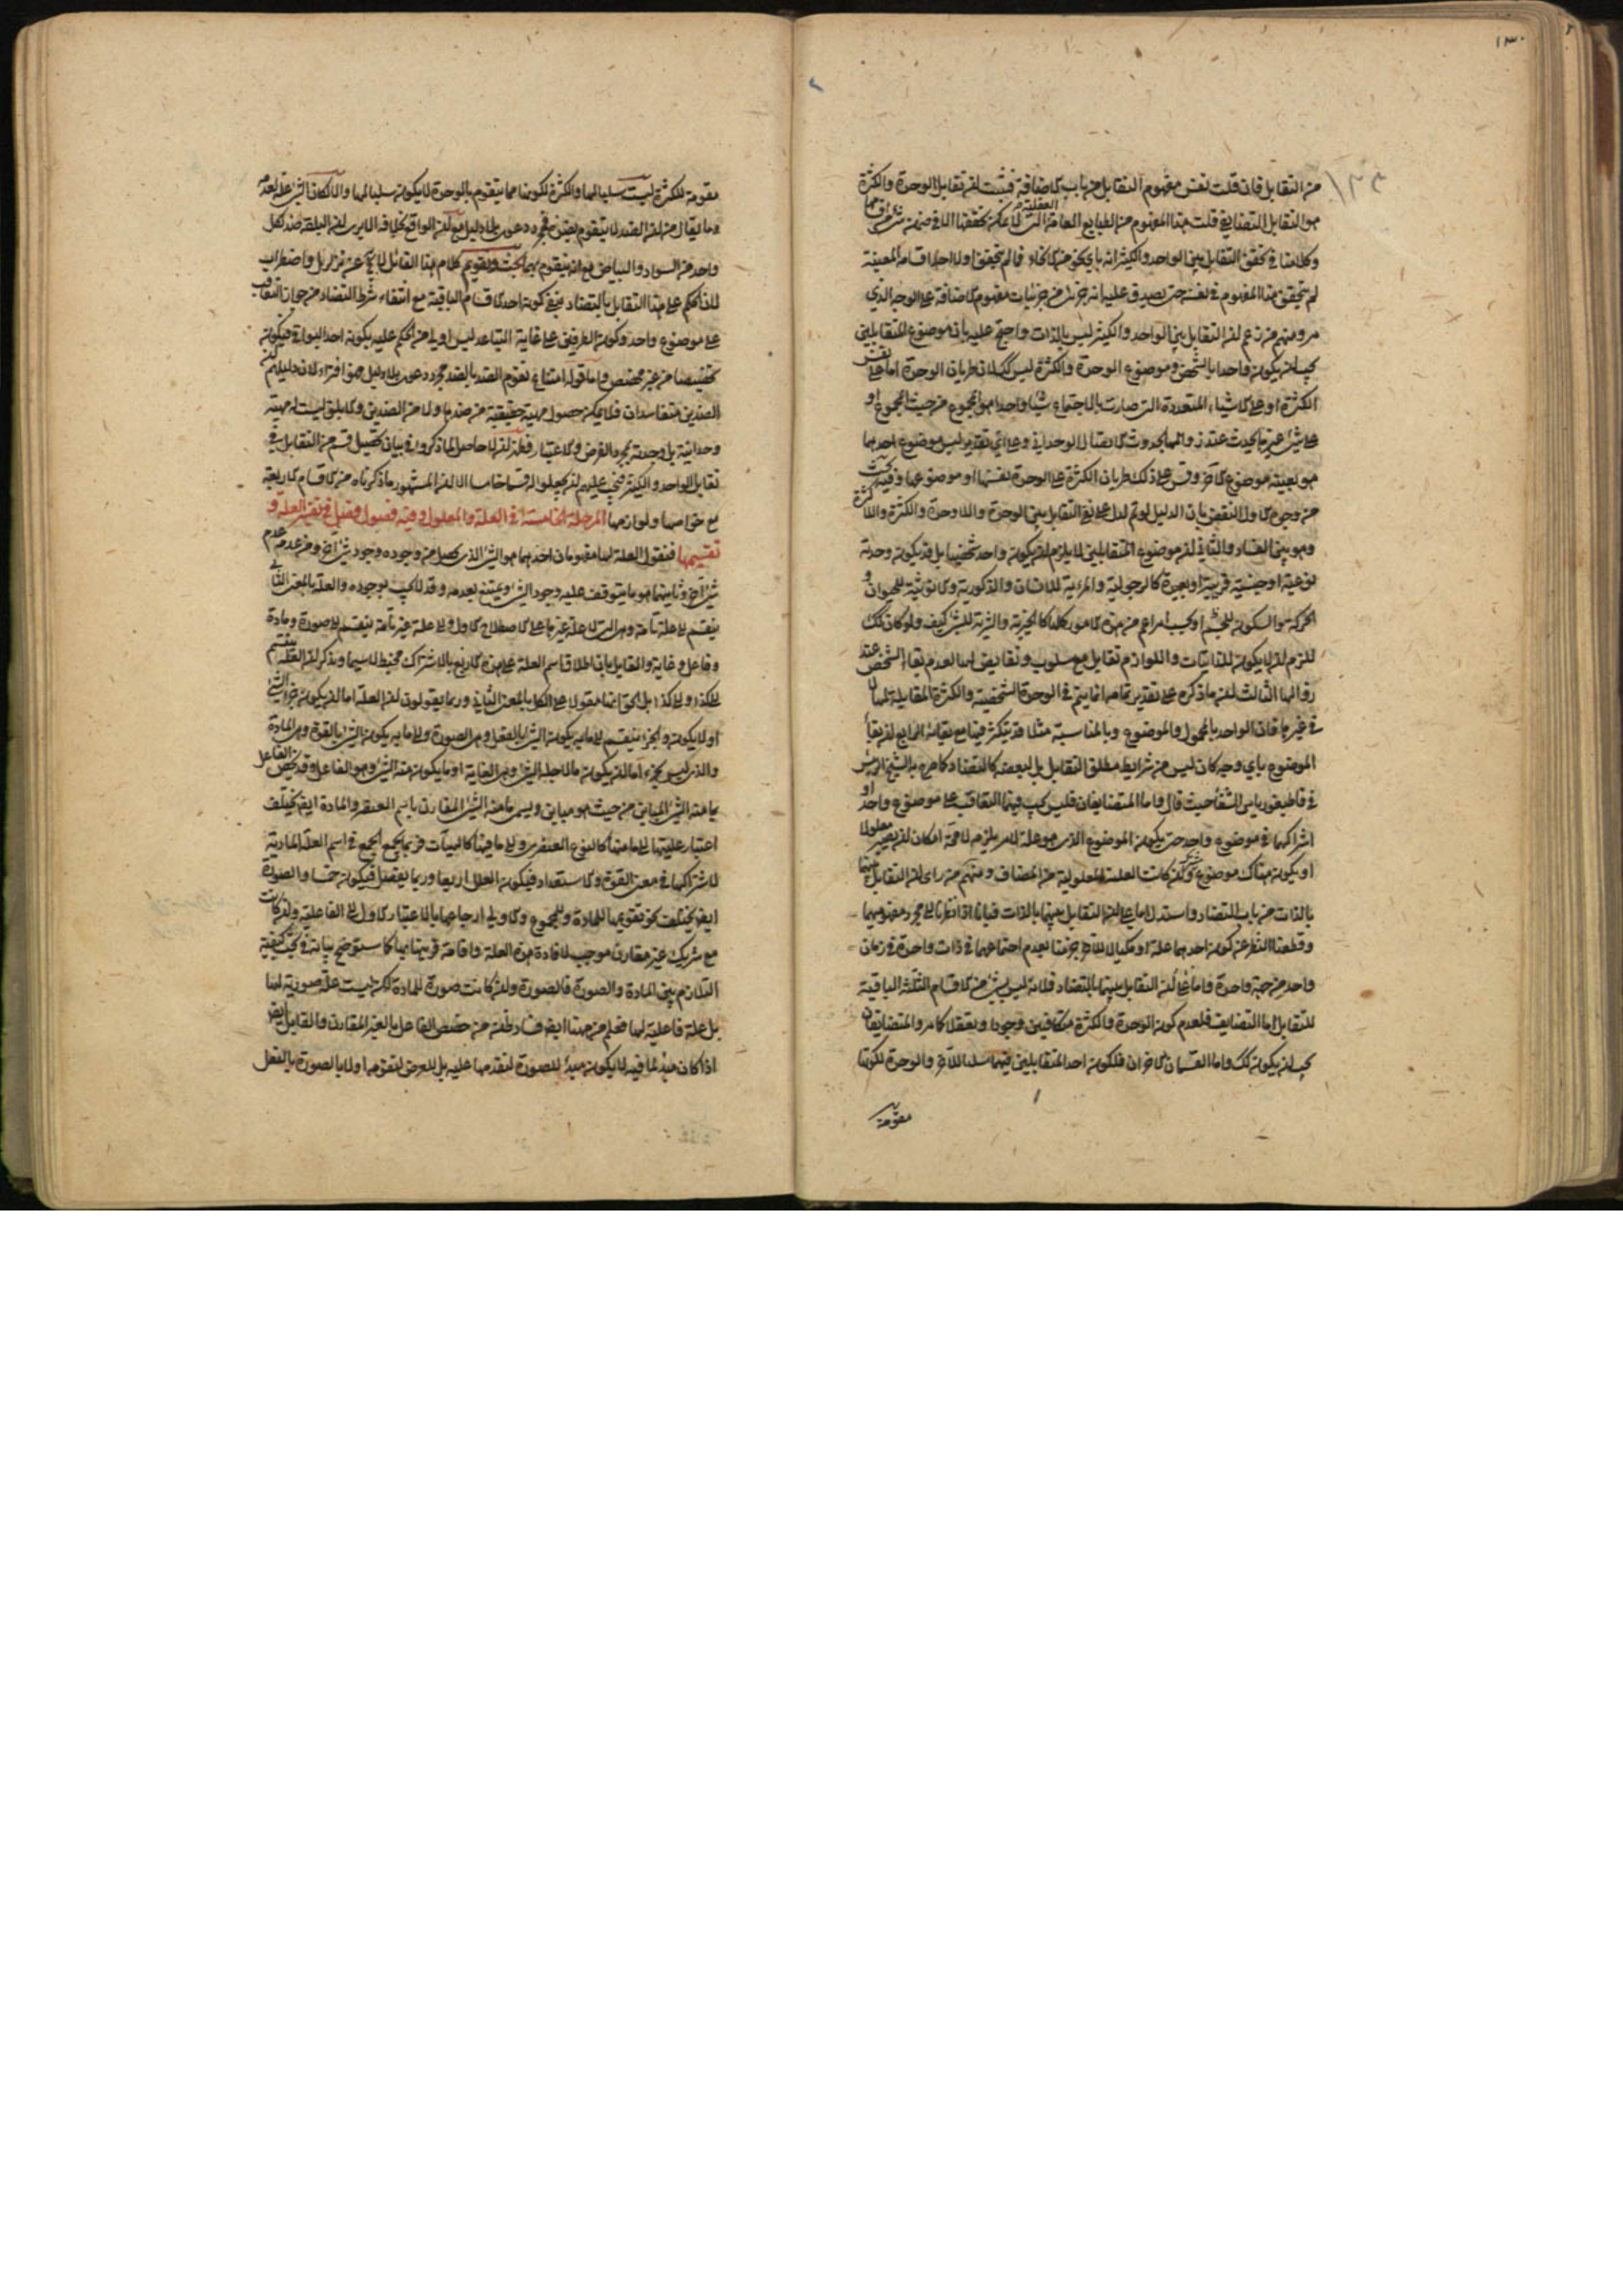 ١٣٠
من التقابل فان قلت نفس مفهوم التقابل من باب الاضافة فيثبت ان تقابل الوحدة والكثرة
هو التقابل التضايفي قلت هذا المفهوم من الطبايع العامة العقلية التي لا يمكن تحققها الا في ضمن شيء من
وكلامنا في تحقق التقابل بين الواحد والكثير انه باي نحو من الانحاء فما لم يتحقق اولا احد اقسامه المعينة
لم يتحقق هذا المفهوم في نفسه حتى يصدق عليه انه جزئي من جزئيات مفهوم الاضافة على الوجه الذي
مر ومنهم من زعم ان التقابل بين الواحد والكثير ليس بالذات واحتج عليه بان موضوع المتقابلين
يجب ان يكون واحدا بالشخص وموضوع الوحدة والكثرة ليس كك لان طريان الوحدة اما على نفس
الكثرة او على الاشياء المتعددة التي صارت بالاجتماع شيئا واحدا هو المجموع من حيث المجموع او
على شيء غير ما يحدث عند زوالهما بحدوث الاتصال الوحداني وعلى اي تقدير ليس موضوع احدهما
هو بعينه موضوع الاخر وقس على ذلك طريان الكثرة على الوحدة نفسها او موضوعها وفيه بحث
من وجوه الاول النقض بان الدليل لو تم لدل على نفي التقابل بين الوحدة واللاوحدة والكثرة واللاكثرة
وهو بين الفساد والثاني ان موضوع المتقابلين لا يلزم ان يكون واحدا شخصيا بل قد يكون وحدته
نوعية او جنسية قريبة او بعيدة كالرجولية والمرءية للانسان والذكورية والانوثية للحيوان و
الحركة والسكون للجسم او بحسب امر اعم من هذه الامور كلها كالخيرية والشرية للشيء كيف ولو كان كك
للزم ان لا يكون للذاتيات واللوازم تقابل مع سلوب ونقايض لها لعدم بقاء الشخص عند
زوالها الثالث ان ما ذكره على تقدير تمامه انما يتم في الوحدة الشخصية والكثرة المقابلة لها لا
في غيرها فان الواحد بالمحمول والموضوع وبالمناسبة مثلا قد يتكثر فيها مع بقائه الرابع ان بقاء
الموضوع باي وجه كان ليس من شرايط مطلق التقابل بل لبعضه كالتضاد كما صرح به الشيخ الرئيس
في قاطيغورياس الشفا حيث قال واما المتضايفان فليس يجب فيهما التعاقب على موضوع واحد او
اشتراكهما في موضوع واحد حتى يكون الموضوع الذي هو علة لامر يلزم لا محة امكان ان يصير معلولا
او يكون هناك موضوع مشترك وان كانت العلية والمعلولية من المضاف ومنهم من راى ان التقابل بينهما
بالذات من باب التضاد واستدل اما على ان التقابل بينهما بالذات فبانا اذا نظرنا الى مجرد مفهوميهما
وقطعنا النظر عن كون احدهما علة او مكيالا للاخر جزمنا بعدم اجتماعهما في ذات واحدة في زمان
واحد من جهة واحدة واما على ان التقابل بينهما بالتضاد فلانه ليس بشيء من الاقسام الثلثة الباقية
للتقابل اما التضايف فلعدم كون الوحدة والكثرة متكافئين وجودا وتعقلا كما مر والمتضايفان
يجب ان يكونا كك واما القسمان الاخران فلكون احد المتقابلين فيهما سلبا للاخر والوحدة لكونها
مقومة
مقومة للكثرة ليست سلبا لها والكثرة لكونها مما يتقوم بالوحدة لا يكون سلبا لها والا لكان الشيء علة لعدمه
وما يقال من ان الضد لا يتقوم بضده فمجرد دعوى بلا دليل مع ان الواقع بخلافه الا يرى ان البلقة ضد لكل
واحد من السواد والبياض مع انه يتقوم بهما بحث وتقويم كلام هذا القائل لا يخ عن تزلزل واضطراب
لان الحكم على هذا التقابل بالتضاد بنفي كونه احد الاقسام الباقية مع انتفاء شرط التضاد من جواز التعاقب
على موضوع واحد وكون الطرفين على غاية التباعد ليس اولى من الحكم عليه بكونه احد البواقي فيكون
تخصيصا من غير مخصص واما قوله امتناع تقوم الضد بالضد مجرد دعوى بلا دليل فهو افتراء لان دليلهم كون
الضدين متفاسدان فلا يمكن حصول مهية حقيقية من ضدها ولا من الضدين والابلق ليست له مهية
وحدانية بل وحدته بمجرد الفرض والاعتبار فعلم ان لا حاصل لما ذكروا في بيان تحصيل قسم من التقابل في
تقابل الواحد والكثير فيجب عليهم ان يجعلوا له قسما خامسا الا ان المشهور ما ذكرناه من الاقسام الاربعة
مع خواصها ولوازمها المرحلة الخامسة في العلة والمعلول وفيه فصول فصل في تفسير العلة و
تقسيمها فنقول العلة لها مفهومان احدهما هو الشيء الذي يحصل من وجوده وجود شيء اخر ومن عدمه عدم
شيء اخر وثانيهما هو ما يتوقف عليه وجود الشيء ويمتنع بعدمه وقد لا يجب بوجوده والعلة بالمعنى الثاني
ينقسم الى علة تامة وهي التي لا علة غيرها على الاصطلاح الاول والى علة غير تامة ينقسم الى صورة ومادة
وفاعل وغاية والمقابل بان اطلاق اسم العلة على هذه الاربع بالاشتراك مخبط لا سيما ويذكر ان العلة ينقسم
الى كذا والى كذا بل الحق انها مقولة على الكل بالمعنى الثاني وربما يقولون ان العلة اما ان يكون جزء الشيء
او لا يكون والجزء ينقسم الى ما به يكون الشيء بالفعل وهي الصورة والى ما به يكون الشيء بالقوة وهي المادة
والذي ليس بجزء اما ان يكون ما لاجله الشيء وهي الغاية او ما يكون منه الشيء وهو الفاعل وقد يخص الفاعل
بما منه الشيء المباين من حيث هو مباين ويسمى ما منه الشيء المقارن باسم العنصر والمادة ايض يختلف
اعتبار عليتها الى ما منها كالنوع العنصري والى ما فيها كالهيات فربما يجمع الجميع في اسم العلة المادية
لاشتراكها في معنى القوة والاستعداد فيكون العلل اربعا وربما يفصل فيكون خمسا والصورة
ايض يختلف نحو تقويمها للمادة وللمجموع والاولى ارجاعها بالاعتبار الاول الى الفاعلية وان كانت
مع شريك غير مقارن موجب لافادة هذه العلة واقامة قرينها بها كما ستوضح بيانه في بحث كيفية
التلازم بين المادة والصورة فالصورة وان كانت صورة للمادة لكن ليست علة صورية لها
بل علة فاعلية لها فعلم من ههنا ايض فساد ظن من خصص الفاعل بالغير المقارن والقابل ايض
اذا كان مبدءا لما فيه لا يكون مبدءا للصورة لتقدمها عليه بل للعرض لتقومه اولا بالصورة بالفعل